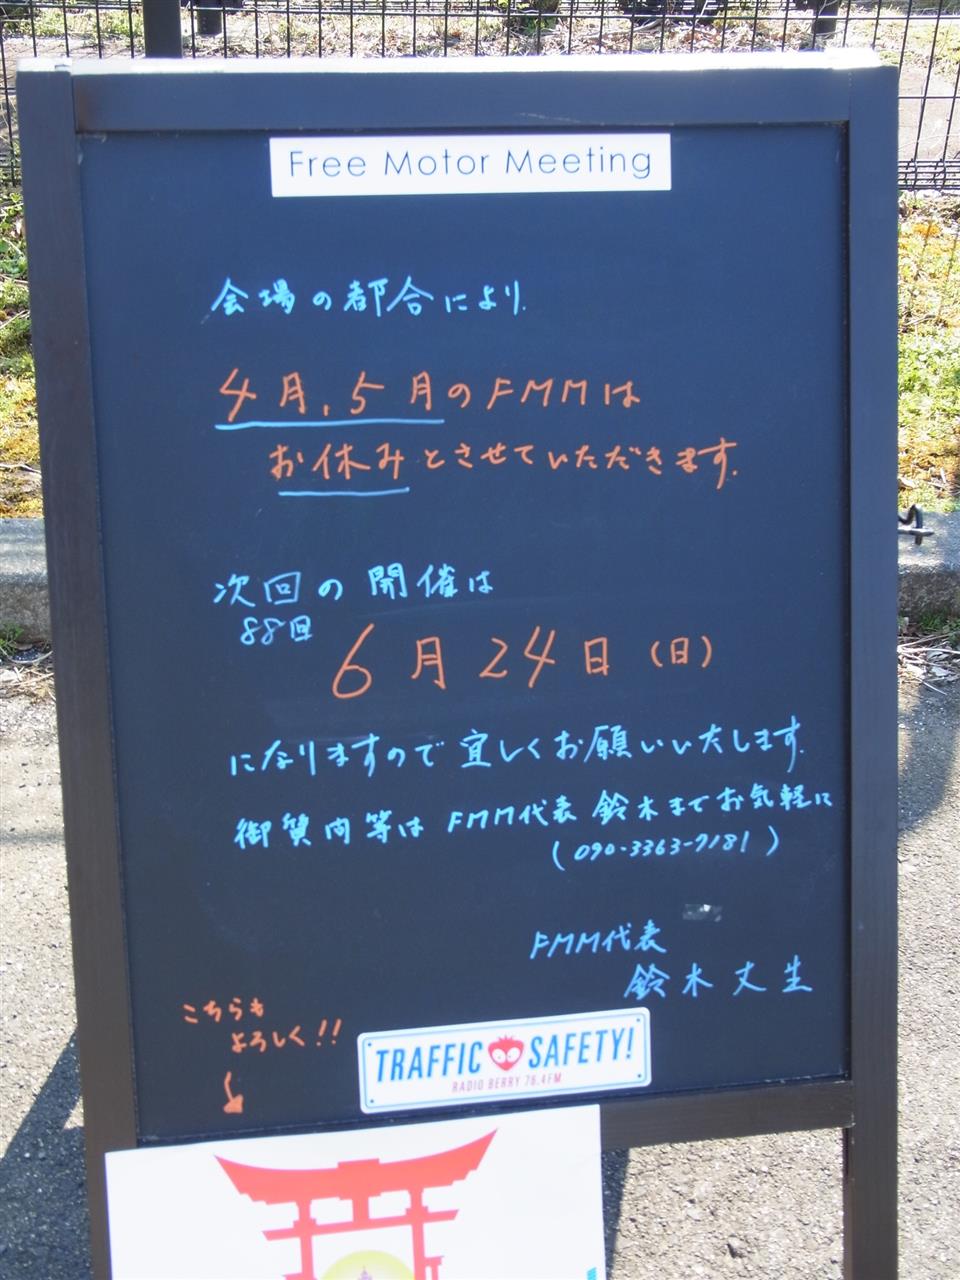 Free Motor Meeting
会場の都合により.
4月、5月のFMMは
お休みとさせていただきます.
次回の開催は
88回
6月24日(日)
になりますので宜しくお願いい大します.
御質問等はFMM代表 鈴木までお気軽に
(090-3363-7181)
FMM代表
鈴木丈生
こちらも
よろしく!!
TRAFFIC SAFETY!
RADIO BERRY 76.4FM